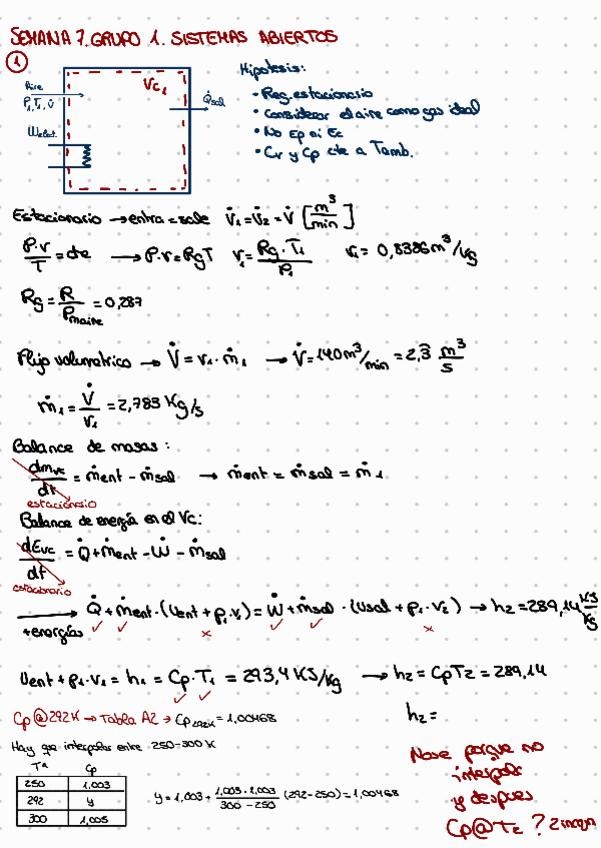 SEMANA 7. GRUPO 1. SISTEMAS ABIERTOS
1
Aire
P1, T1, V̇
Welect.
VC1
Q̇sal
Hipotesis:
• Reg. estacionario
• Considerar el aire como gas ideal
• No Ep ni Ec
• Cv y Cp cte a Tamb.
Estacionario → entra = sale V̇1 = V̇2 = V̇ [m³/min]
P·v/T = cte → P·v = RgT v1 = Rg·T1/P1 v1 = 0,8386 m³/kg
Rg = R/Pmaire = 0,287
Flujo volumetrico → V̇ = v1·ṁ1 → V̇ = 140 m³/min = 2,3 m³/s
ṁ1 = V̇/v1 = 2,783 Kg/s
Balance de masas:
dmvc/dt = ṁent - ṁsal → ṁent = ṁsal = ṁ1
estacionario
Balance de energía en el VC:
dEvc/dt = Q̇ + ṁent - Ẇ - ṁsal
estacionario
Q̇ + ṁent·(Uent + p1·v1) = Ẇ + ṁsal·(Usal + p1·v2) → h2 = 289,14 KJ/Kg
+energías
Uent + p1·v1 = h1 = Cp·T1 = 293,4 KJ/Kg → h2 = CpT2 = 289,14
Cp@292K → Tabla A2 → Cp292K = 1,00468
h2 =
Hay que interpolar entre 250-300 K
Tª Cp
250 1,003
292 y
300 1,005
y = 1,003 + 1,005-1,003/300-250 (292-250) = 1,00468
Nose porque no
interpola
y despues
Cp@T2 ? 2 incogn